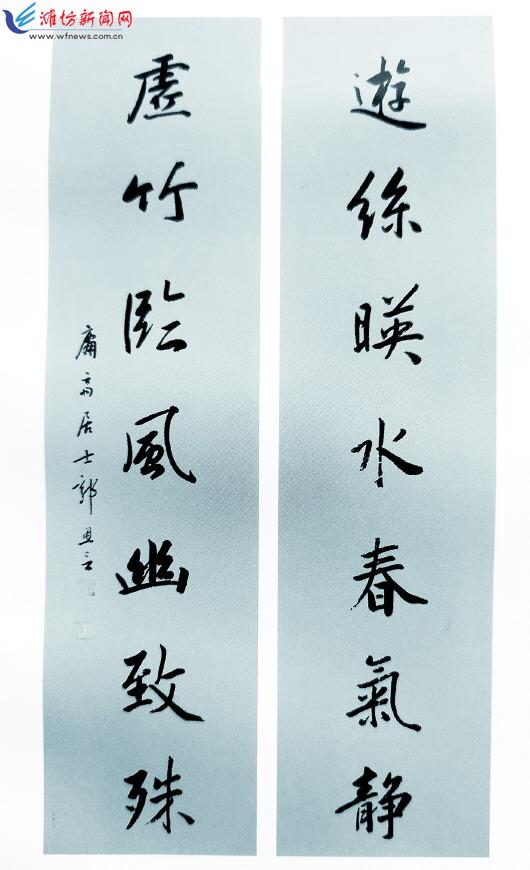 潍坊新闻网
www.wfnews.com.cn
遊絲暎水春氣静
虛竹臨風幽致殊
庸高居士郭思言